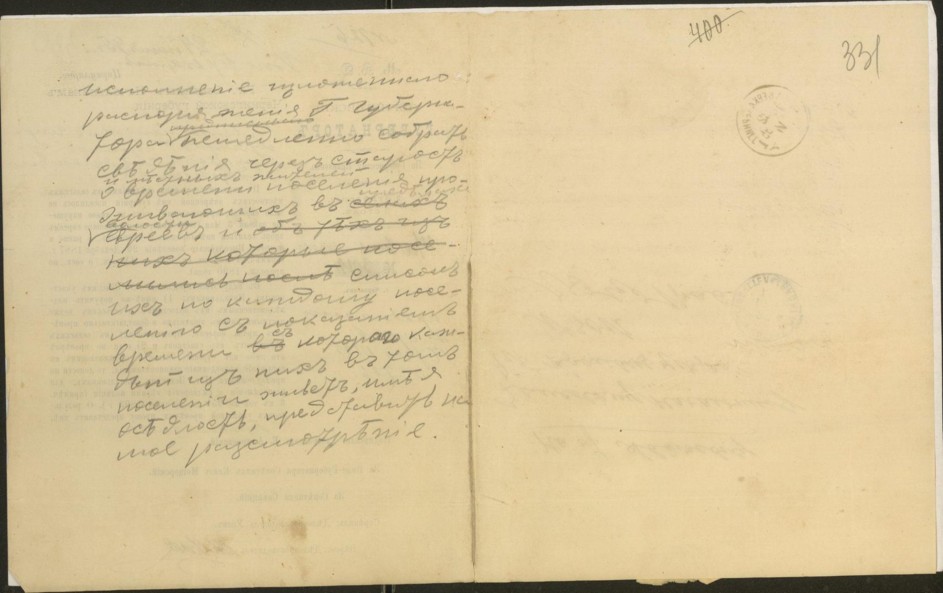 400.
331
исполненіе изложеннаго
распоряженія Г. Губерна-
тора
немедленно собрать
свѣдѣнія черезъ старостъ
и
жителей
о времени поселенія про-
живающихъ въ
волости
евреевъ и объ тѣхъ изъ
нихъ которые посе-
лились послѣ списокъ
ихъ по каждому посе-
ленію съ показаніемъ
съ
времени въ котораго каж-
дый изъ нихъ въ томъ
поселеніи живетъ, имѣя
осѣдлость, представить на
мое разсмотрѣніе.